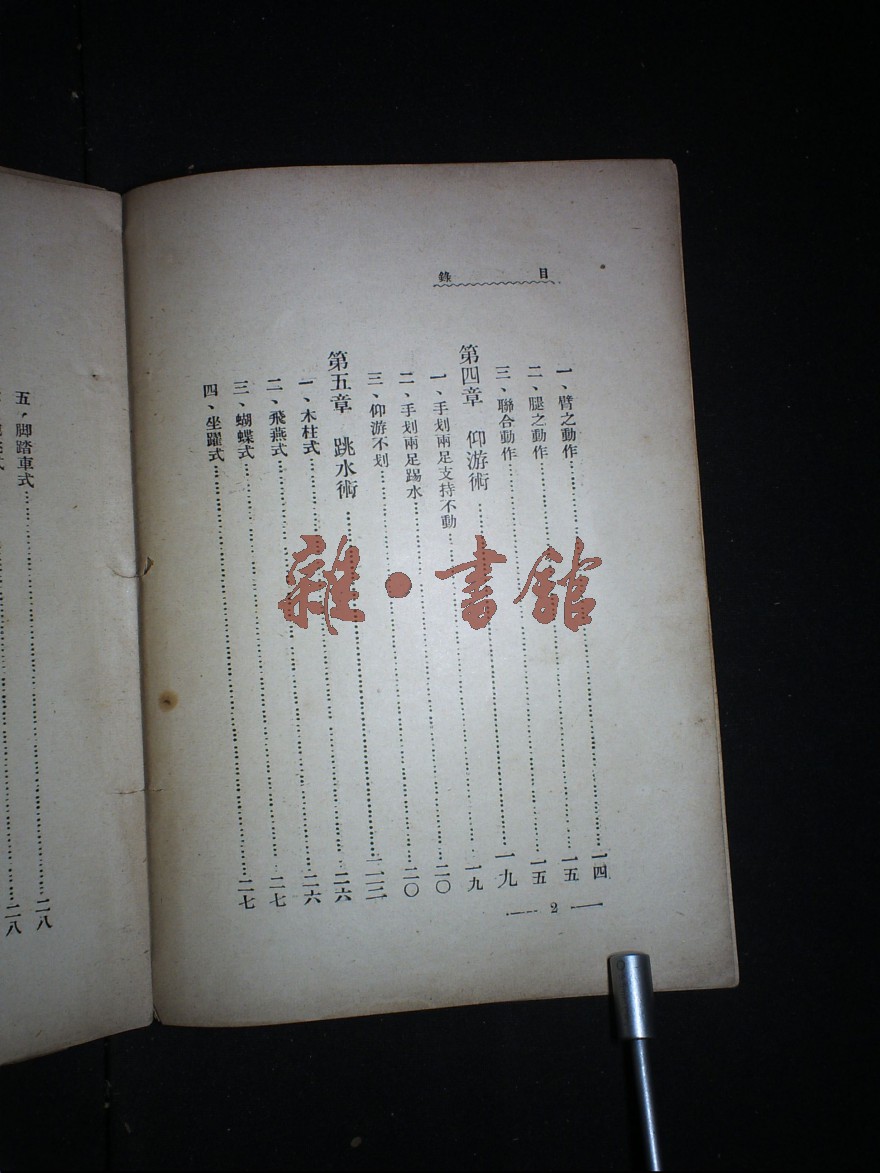 目錄
一、臂之動作 一四
二、腿之動作 一五
三、聯合動作 一五
第四章 仰游術 一九
一、手划兩足支持不動 一九
二、手划兩足踢水 二〇
三、仰游不划 二〇
第五章 跳水術 二三
一、木柱式 二六
二、飛燕式 二六
三、蝴蝶式 二七
四、坐躍式 二七
2
五、脚踏車式 二八
二八
雜·書館